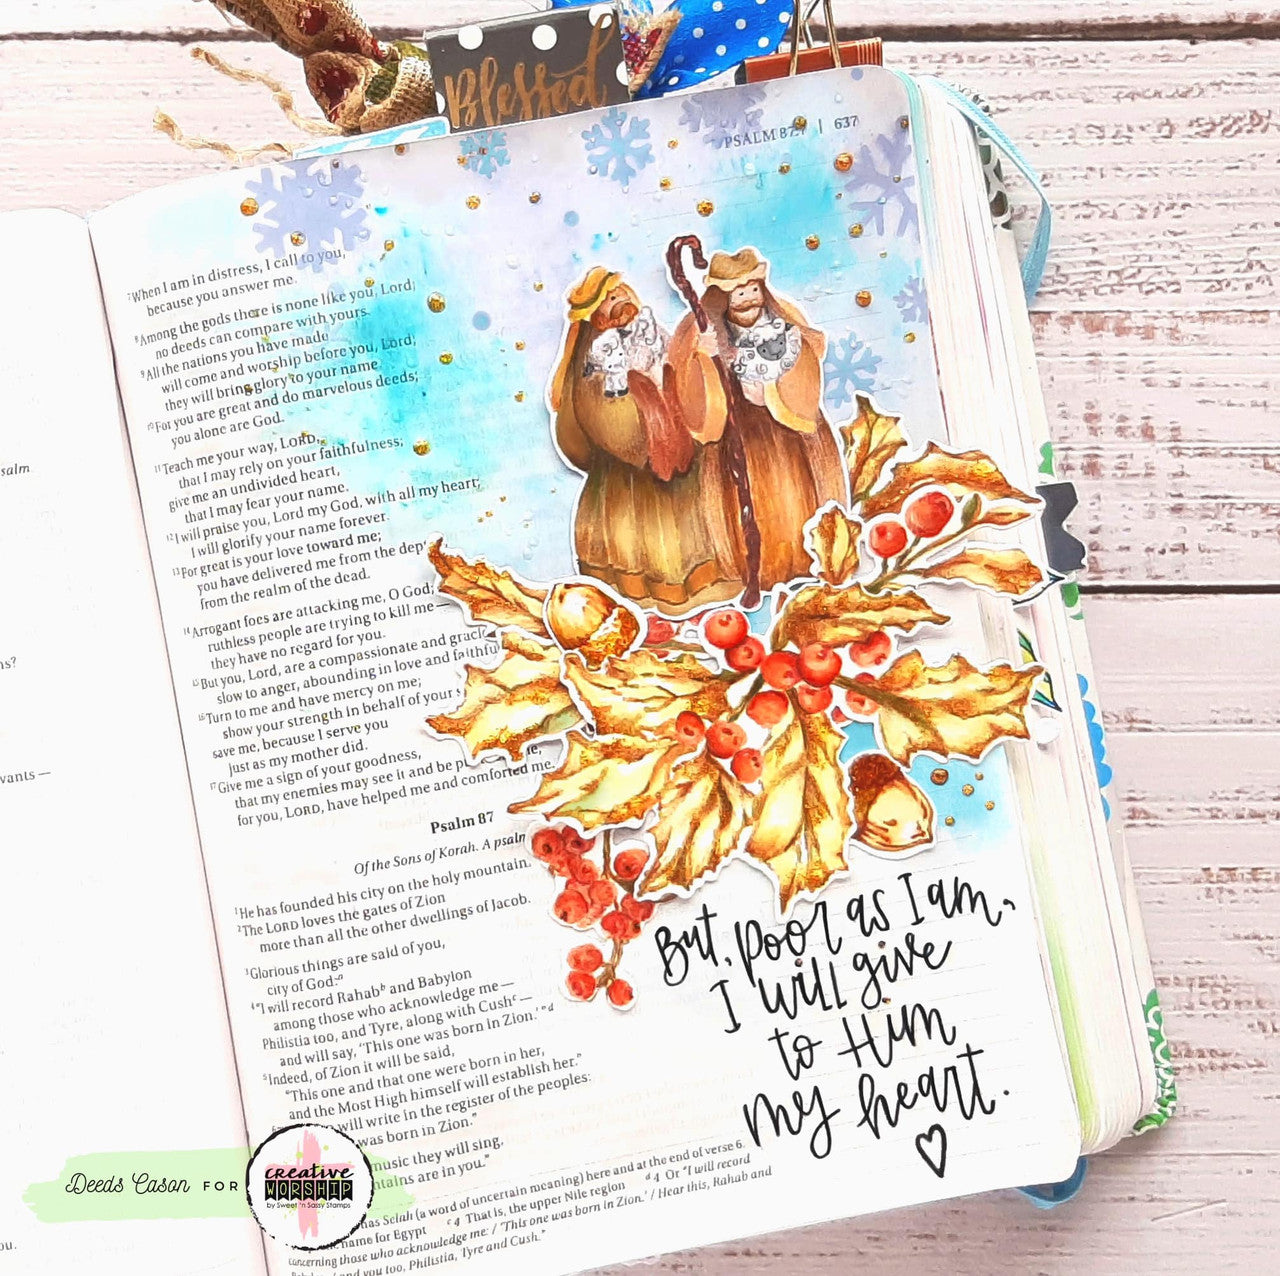 Blessed
PSALM 87:7 | 637
7When I am in distress, I call to you,
because you answer me.
8Among the gods there is none like you, Lord;
no deeds can compare with yours.
9All the nations you have made
will come and worship before you, Lord;
they will bring glory to your name.
10For you are great and do marvelous deeds;
you alone are God.
11Teach me your way, LORD,
that I may rely on your faithfulness;
give me an undivided heart,
that I may fear your name.
12I will praise you, Lord my God, with all my heart;
I will glorify your name forever.
13For great is your love toward me;
you have delivered me from the dep
from the realm of the dead.
14Arrogant foes are attacking me, O God;
ruthless people are trying to kill me—
they have no regard for you.
15But you, Lord, are a compassionate and graci
slow to anger, abounding in love and faithfu
16Turn to me and have mercy on me;
show your strength in behalf of your s
save me, because I serve you
just as my mother did.
17Give me a sign of your goodness,
that my enemies may see it and be p
for you, LORD, have helped me and comforted me.
Psalm 87
Of the Sons of Korah. A psalm
1He has founded his city on the holy mountain.
2The LORD loves the gates of Zion
more than all the other dwellings of Jacob.
3Glorious things are said of you,
city of God:a
4"I will record Rahabb and Babylon
among those who acknowledge me—
Philistia too, and Tyre, along with Cushc—
and will say, 'This one was born in Zion.' "d
5Indeed, of Zion it will be said,
"This one and that one were born in her,
and the Most High himself will establish her."
will write in the register of the peoples:
was born in Zion."
music they will sing,
ntains are in you."
has Selah (a word of uncertain meaning) here and at the end of verse 6.
name for Egypt c 4 That is, the upper Nile region d 4 Or "I will record
concerning those who acknowledge me: / 'This one was born in Zion.' / Hear this, Rahab and
and you too, Philistia, Tyre and Cush."
But, poor as I am,
I will give
to Him
my heart.
salm
ns?
vants—
ou.
Deeds Cason FOR
creative
WORSHIP
by Sweet 'n Sassy Stamps